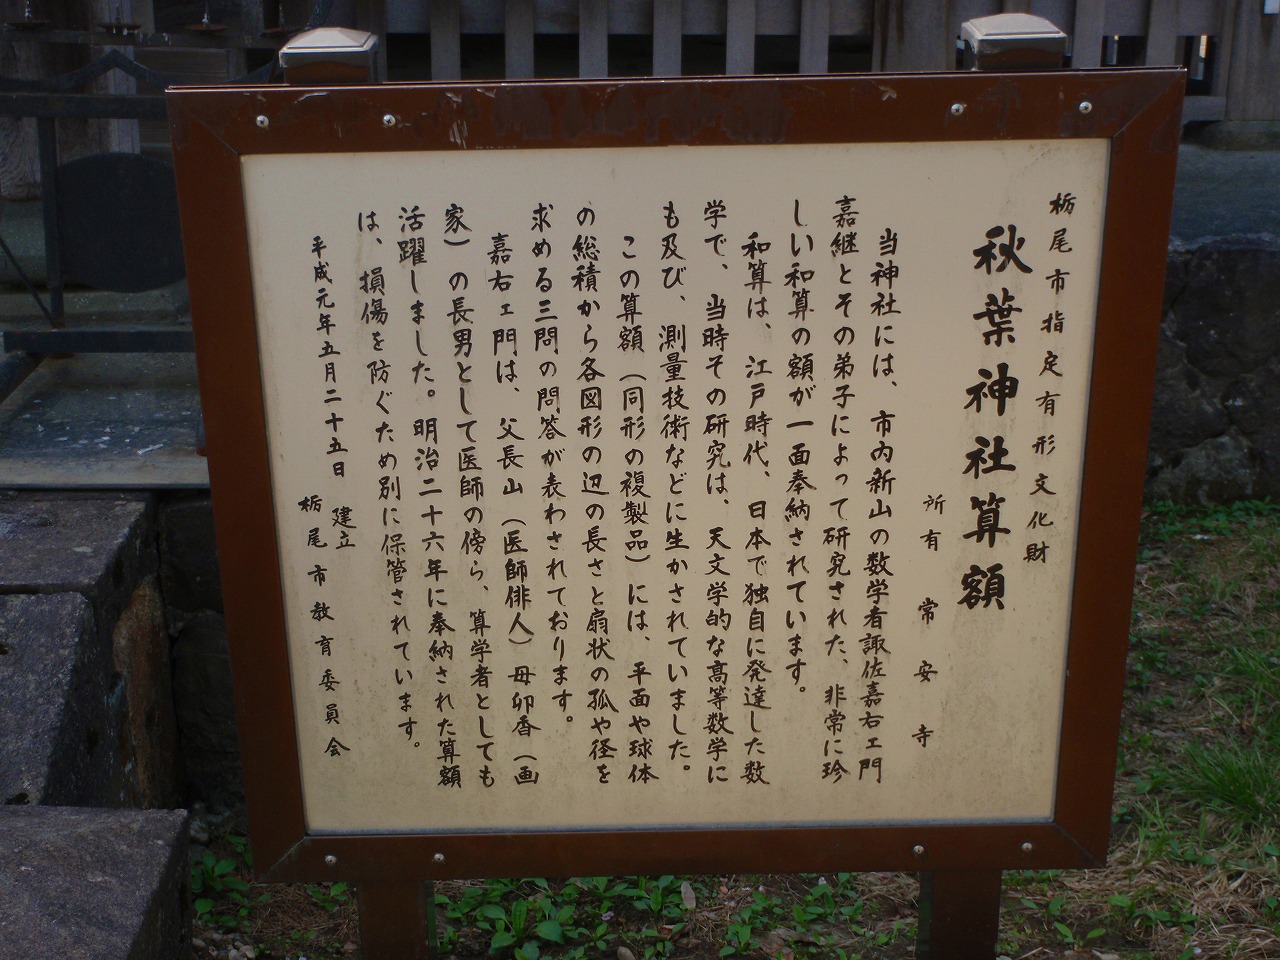 栃尾市指定有形文化財
秋葉神社算額
所有 常安寺
当神社には、市内新山の数学者諏佐嘉右ェ門
嘉継とその弟子によって研究された、非常に珍
しい和算の額が一面奉納されています。
和算は、江戸時代、日本で独自に発達した数
学で、当時その研究は、天文学的な高等数学に
も及び、測量技術などに生かされていました。
この算額（同形の複製品）には、平面や球体
の総積から各図形の辺の長さと扇状の孤や径を
求める三問の問答が表わされております。
嘉右ェ門は、父長山（医師俳人）母卯香（画
家）の長男として医師の傍ら、算学者としても
活躍しました。明治二十六年に奉納された算額
は、損傷を防ぐため別に保管されています。
平成元年五月二十五日
建立
栃尾市教育委員会